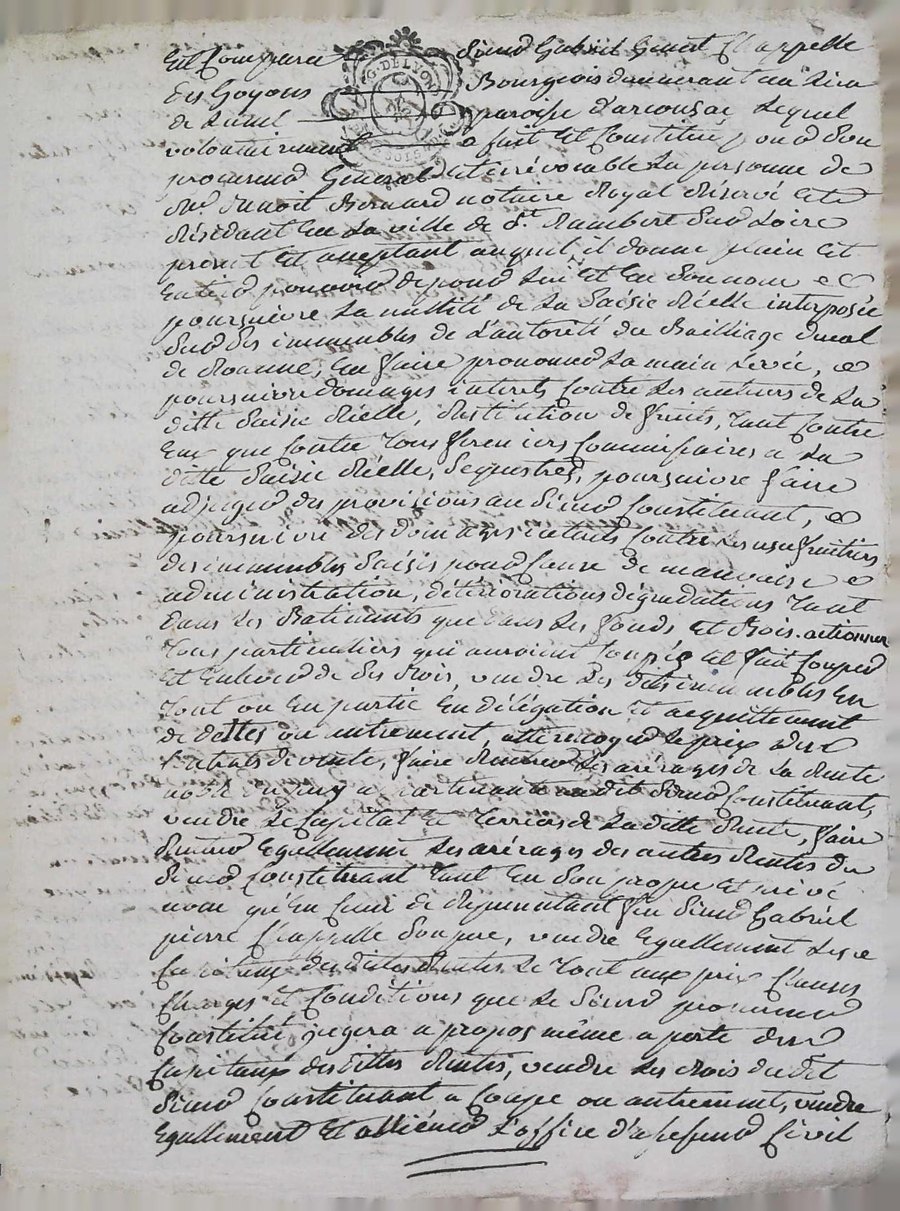 Est Comparu Sieur Gabriel Genest Chappelle
Des Goyons Bourgeois demeurant au lieu
de Lunel paroisse d'arconsac Lequel
volontairement a fait Et Constitué pour Son
procureur General et irrévocable La personne de
Me Benoit Bernard notaire Royal Réservé Et
Résidant En La ville de St Rambert Sur Loire
présent Et acceptant auquel il donne plain Et
Entier pouvoir de pour Lui Et En Son nom
poursuivre La nullité de La Saisie Réelle interposée
Sur Ses immeubles de L'autorité du Bailliage Ducal
de Roanne, En faire prononcer La main Levée,
poursuivre domages interets Contre Les auteurs de La
ditte Saisie Réelle, Restitution de fruits, Tant Contre
Eux que Contre Tous fermiers Commissaires a La
ditte Saisie Réelle, Sequestres, poursuivre faire
adjuger des provisions au Sieur Constituant,
poursuivre des domages interets Contre Les usufruitiers
des immeubles Saisis pour Cause de mauvaise
administration, détériorations dégradations Tant
Dans Les Batiments que Dans Les fonds Et Bois. actionner
Tous particuliers qui auroient Coupés Et fait Couper
Et Enlever de Ses Bois, vendre Les dits immeubles En
Tout ou En partie En délégation Et acquittement
de dettes ou autrement, Le prix
de vente, faire Rentrer Les arérages de La Rente
noble apartenante audit Sieur Constituant,
vendre Le Capital Et Terriers de La ditte Rente, faire
Rentrer Egallement Les arérages des autres Rentes du
Sieur Constituant Tant En Son propre Et privé
nom qu'En Cette de Représentant feu Sieur Gabriel
pierre Chappelle Son pere, vendre Egallement Les
Capitaux des dites Rentes Le Tout aux prix Clauses
Charges et Conditions que Le Sieur procureur
Constitué jugera a propos même a perte des
Capitaux desdittes Rentes, vendre Les Bois dudit
Sieur Constituant a Coupe ou autrement, vendre
Egallement Et alliéner L'office d'assesseur Civil